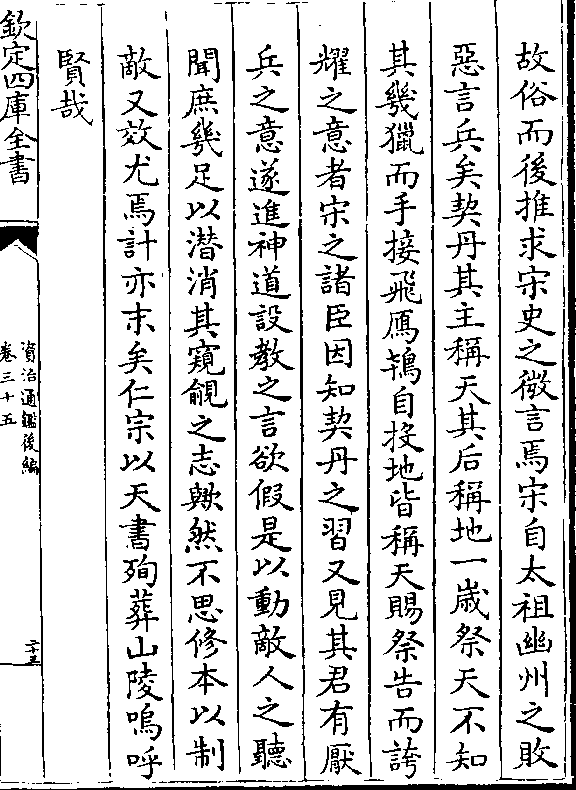 故俗而後推求宋史之微言焉宋自太祖幽州之敗
惡言兵矣契丹其主稱天其后稱地一歲祭天不知
其幾獵而手接飛鴈鴇自投地皆稱天賜祭告而誇
耀之意者宋之諸臣因知契丹之習又見其君有厭
兵之意遂進神道設教之言欲假是以動敵人之聽
聞庶幾足以潛消其窺覦之志歟然不思修本以制
敵又效尤焉計亦末矣仁宗以天書殉葬山陵嗚呼
賢哉
欽定四庫全書
資治通鑑後編
卷三十五
二十三